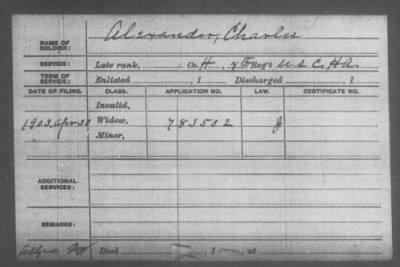 NAME OF SOLDIER: Alexander, Charles
SERVICE: Late rank, Co. H, Reg't U S C. H A.
TERM OF SERVICE: Enlisted , 1 Discharged , 1
DATE OF FILING. CLASS. APPLICATION NO. LAW. CERTIFICATE NO.
Invalid,
1903, Apr. 30 Widow, 783502 J
Minor,
ADDITIONAL SERVICES:
REMARKS:
Died , 1 , at